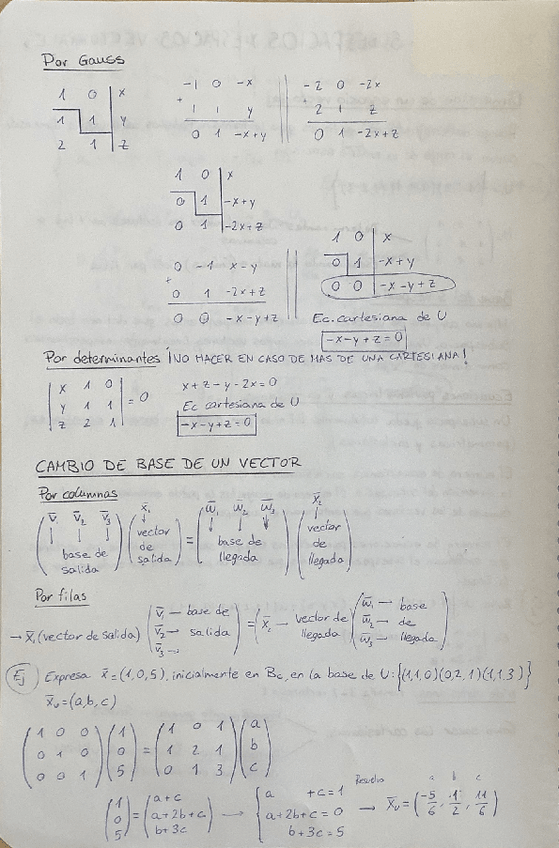 Por Gauss
1 0 | x
1 1 | y
2 1 | z
-1 0 -x
+
1 1 y
0 1 -x+y
-2 0 -2x
2 1 z
0 1 -2x+z
1 0 | x
0 1 | -x+y
0 1 | -2x+z
0 -1 x-y
+
0 1 -2x+z
0 0 -x-y+z
1 0 | x
0 1 | -x+y
0 0 | -x-y+z
Ec. cartesiana de U
-x-y+z=0
Por determinantes ¡NO HACER EN CASO DE MAS DE UNA CARTESIANA!
| x 1 0 |
| y 1 1 | = 0
| z 2 1 |
x+z-y-2x=0
Ec cartesiana de U
-x-y+z=0
CAMBIO DE BASE DE UN VECTOR
Por columnas
(v̅1 v̅2 v̅3 ↓ ↓ ↓ base de salida) (x̅1 ↓ vector de salida) = (w̅1 w̅2 w̅3 ↓ ↓ ↓ base de llegada) (x̅2 ↓ vector de llegada)
Por filas
→ x̅1 (vector de salida) (v̅1 — base de v̅2 → salida v̅3 →) = (x̅2 — vector de llegada (w̅1 — base w̅2 — de w̅3 — llegada)
Ej Expresa x̅=(1,0,5), inicialmente en Bc, en la base de U:{(1,1,0)(0,2,1)(1,1,3)}
x̅u=(a,b,c)
(1 0 0) (1) = (1 0 1) (a)
(0 1 0) (0) (1 2 1) (b)
(0 0 1) (5) (0 1 3) (c)
(1) = (a+c)
(0) (a+2b+c)
(5) (b+3c)
→
{ a +c=1
a+2b+c=0
b+3c=5
Resuelvo
→ x̅u = (-5/6, -1/2, 11/6)
a b c